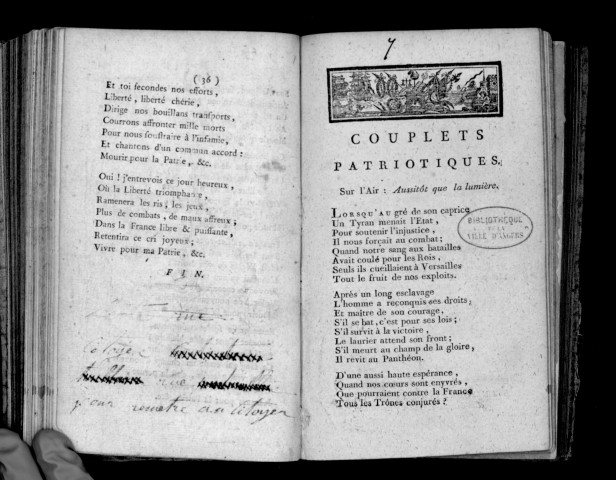 ( 36 )
Et toi secondes nos efforts,
Liberté, liberté chérie,
Dirige nos bouillans transports,
Courrons affronter mille morts
Pour nous soustraire à l'infamie,
Et chantons d'un commun accord :
Mourir pour la Patrie, &c.
Oui ! j'entrevois ce jour heureux,
Où la Liberté triomphante,
Ramenera les ris, les jeux,
Plus de combats, de maux affreux ;
Dans la France libre & puissante,
Retentira ce cri joyeux ;
Vivre pour ma Patrie, &c.
F I N.
pour remetre au Citoyen
7
COUPLETS
PATRIOTIQUES.
Sur l'Air : Aussitôt que la lumière.
LORSQU'AU gré de son caprice
Un Tyran menait l'Etat,
Pour soutenir l'injustice,
Il nous forçait au combat ;
Quand notre sang aux batailles
Avait coulé pour les Rois,
Seuls ils cueillaient à Versailles
Tout le fruit de nos exploits.
BIBLIOTHEQUE
DE LA
VILLE D'ANGERS
Après un long esclavage
L'homme a reconquis ses droits ;
Et maître de son courage,
S'il se bat, c'est pour ses lois ;
S'il survit à la victoire,
Le laurier attend son front ;
S'il meurt au champ de la gloire,
Il revit au Panthéon.
D'une aussi haute espérance,
Quand nos cœurs sont enyvrés,
Que pourraient contre la France
Tous les Trônes conjurés ?